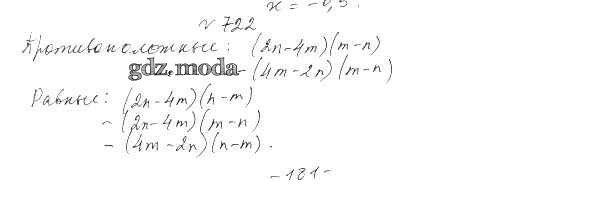 x = -0,5.
№ 722
Противоположные: (2n-4m)(m-n)
gdz.moda -(4m-2n)(m-n)
Равные: (2n-4m)(n-m)
-(2n-4m)(m-n)
-(4m-2n)(n-m).
-181-